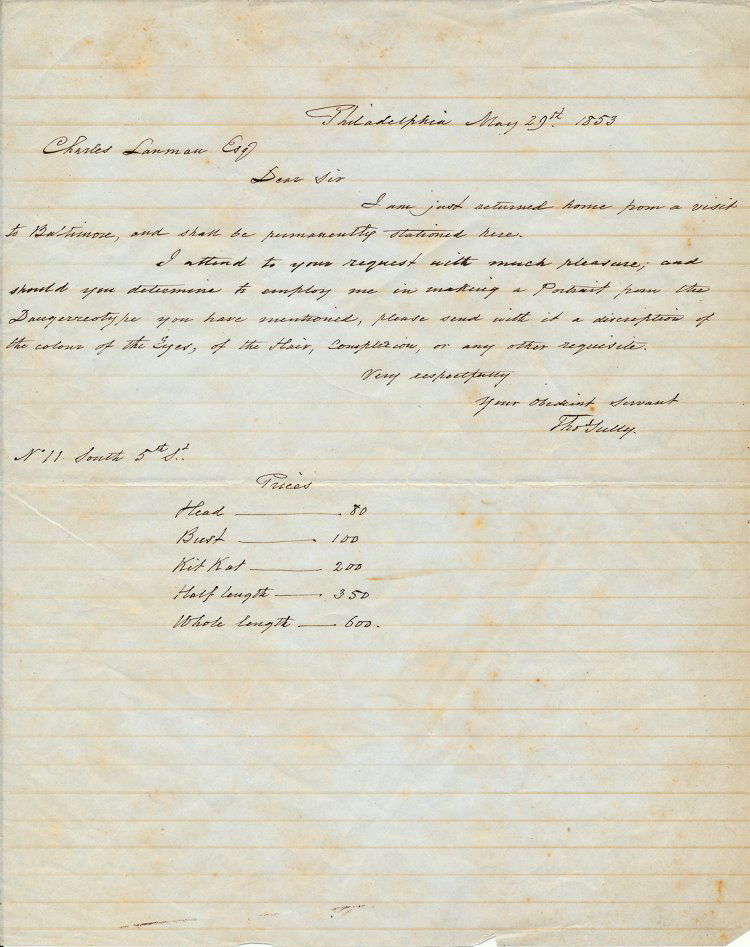 Philadelphia May 29th. 1853
Charles Lanman Esqr
Dear Sir
I am just returned home from a visit
to Baltimore, and shall be permanently stationed here.
I attend to your request with much pleasure; and
should you determine to employ me in making a Portrait from the
Daugerreotype you have mentioned, please send with it a discription of
the colour of the Eyes, of the Hair, Complexion, or any other requisite.
Very respectfully
Your obedient servant
Thos Sully.
No 11 South 5th St.
Prices
Head — 80
Bust — 100
Kit Kat — 200
Half length — 350
Whole length — 600.